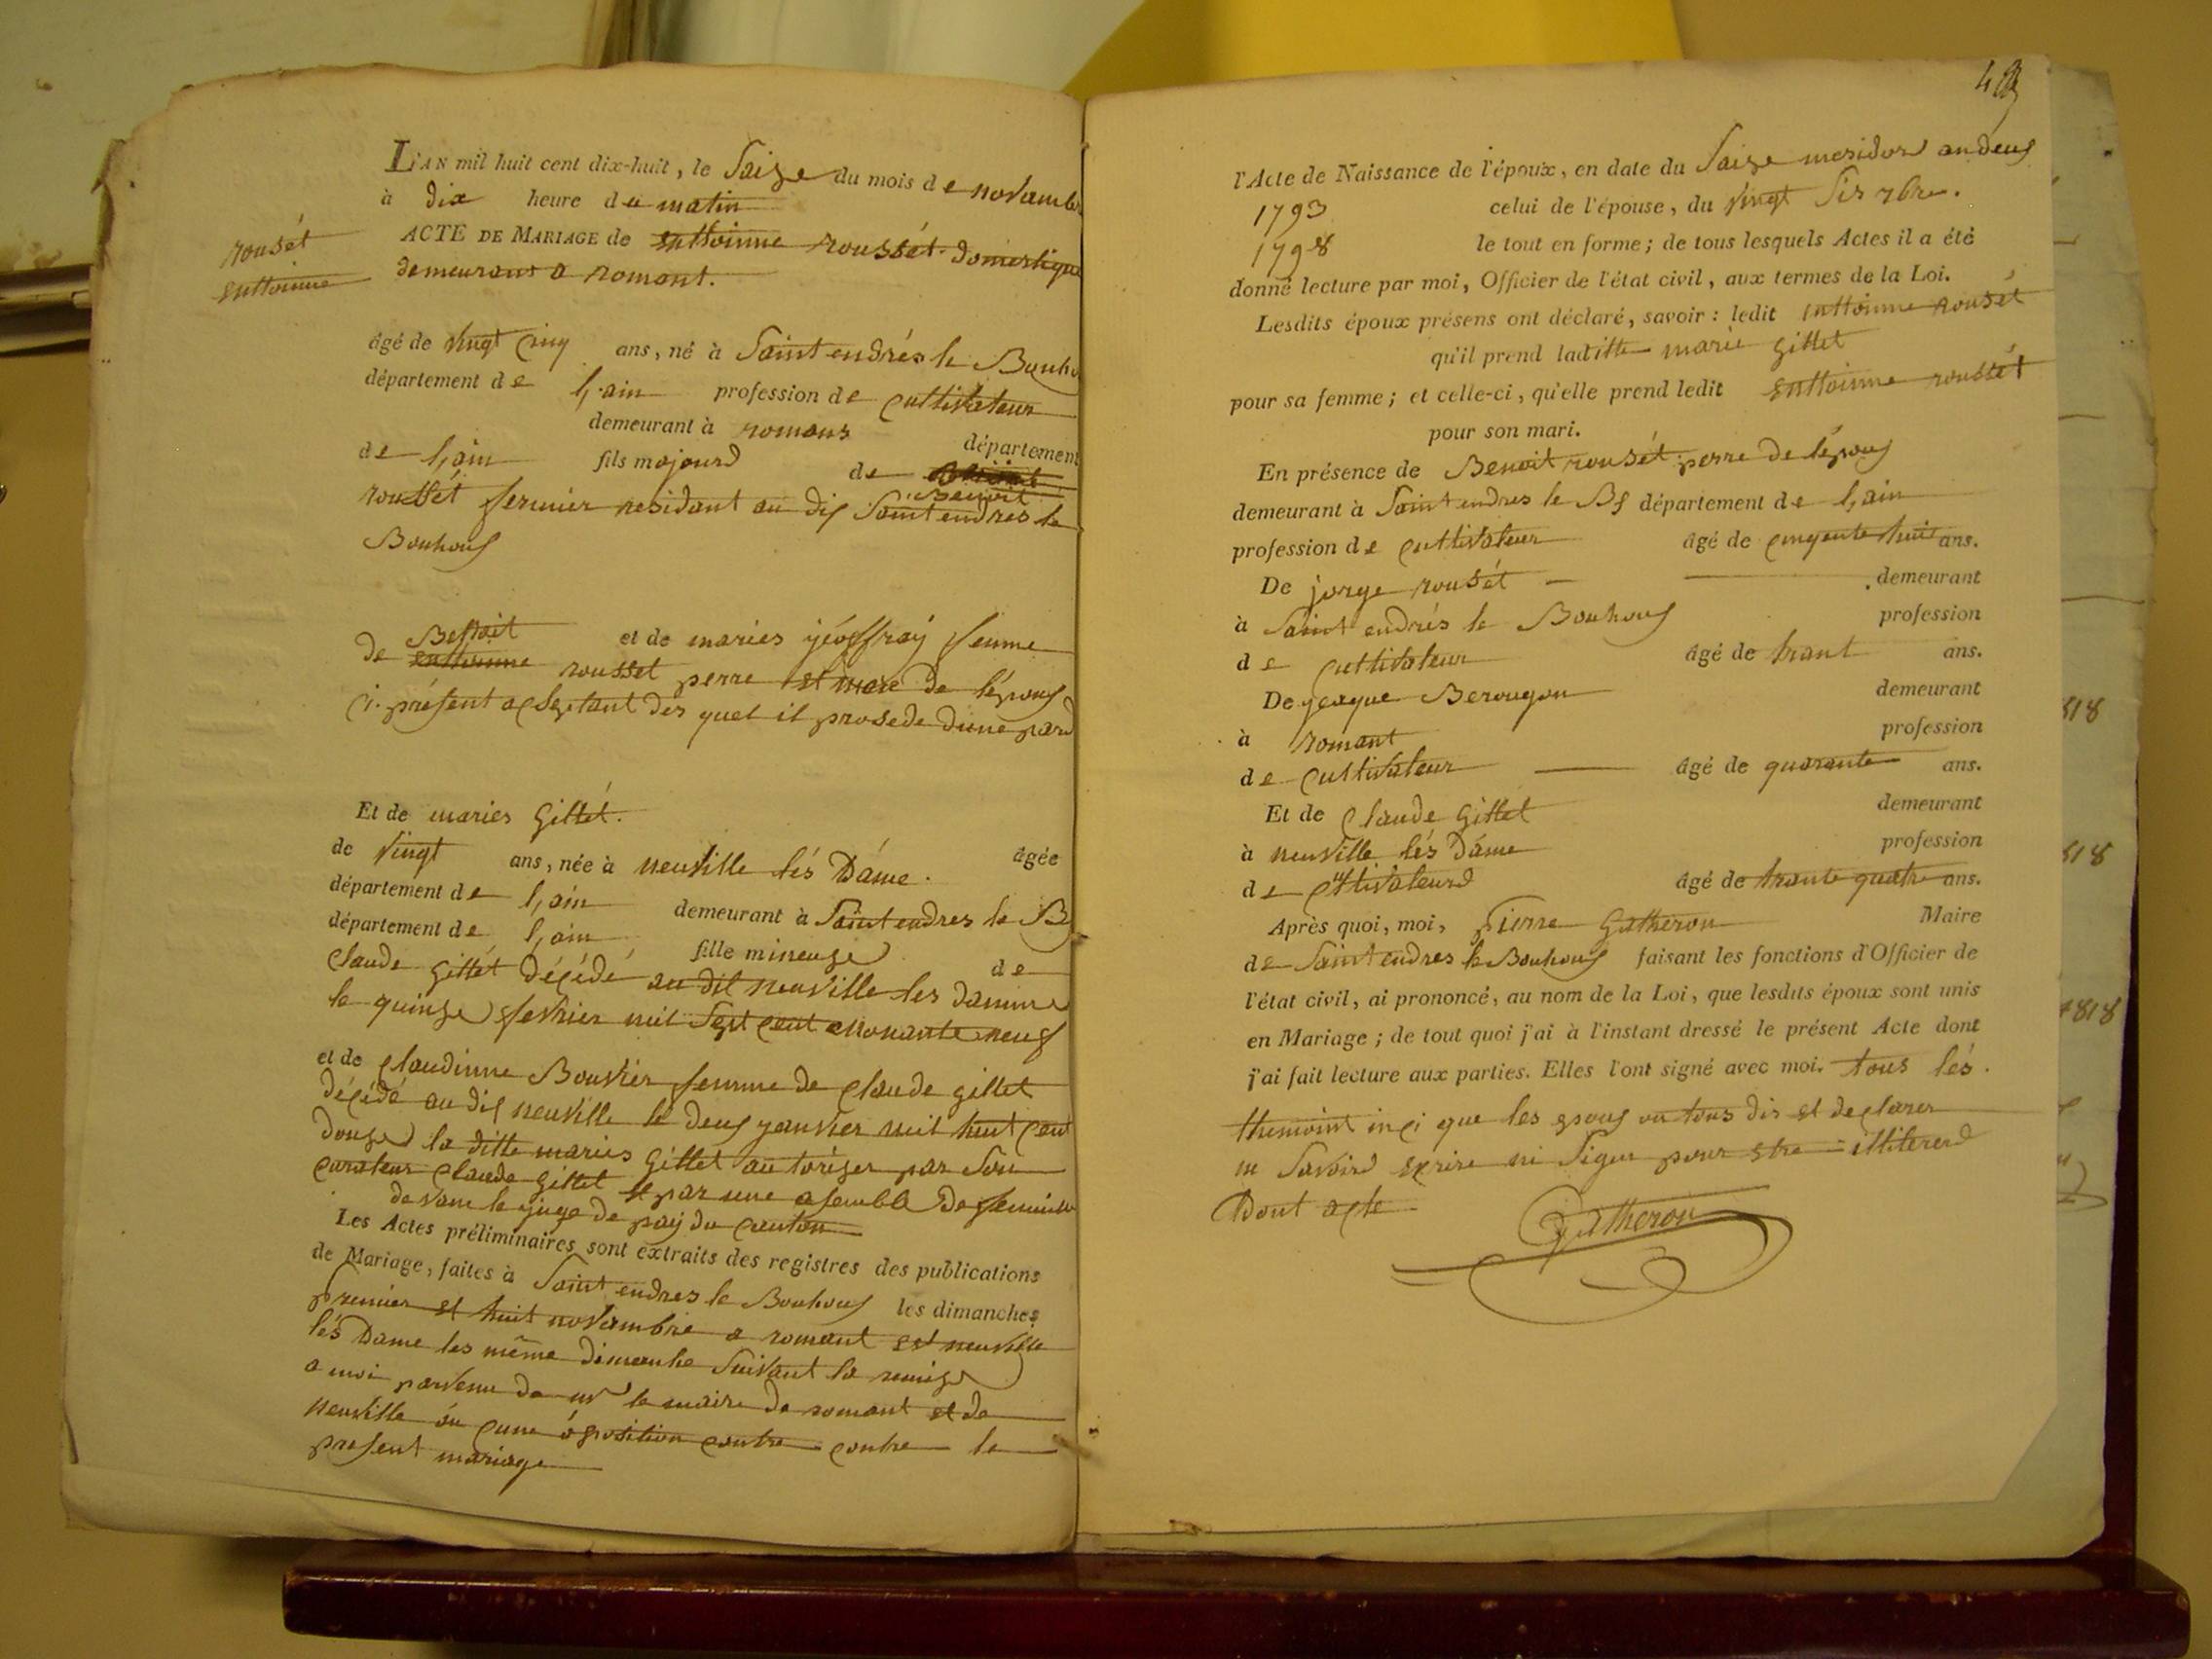 L'AN mil huit cent dix-huit, le Saise du mois de novambre
à dix heure du matin
rousét
enttoinne
ACTE DE MARIAGE de enttoinne roussét domestique
demeurant a romant.
âgé de vingt cinq ans, né à Saint endrés le Bouhou
département de l,ain profession de cultivateur
demeurant à romans département
de l,ain fils majourd de
Benoit
roussét fermier residant au dis Saint endres le
Bouhous
Benoit
de enttoinne rousset perre et mare de l'épous et de maries jéoffray femme
ci présent acseptant des quel il prosede dune pard
Et de maries Gillét. âgée
de vingt ans, née à neuville lés Dáme.
département de l,ain demeurant à Saint endres le B
département de l,ain fille mineuse de
claude gillét décédé au dit neuville les damme
le quinse fevrier mil sept cent enonante neuf
et de claudinne Bouvier femme de claude gillet
décédé au dis neuville le deus janvier mil huit cent
douse la ditte maries Gillet autoriser par son
curateur claude Gillet et par une asemblé de femille
devant le juge de paij du canton
Les Actes préliminaires sont extraits des registres des publications
de Mariage, faites à Saint endres le Bouhous les dimanches
premier et huit novambre a romant est neuville
lés Dame les même dimanhe suivant la remise
a moi parvenu de mr le maire de romant et de
neuville óu cune óposition contre contre le
present mariage
l'Acte de Naissance de l'époux, en date du Saise mesidor an deus
1793 celui de l'épouse, du vingt sis 7bre.
1798 le tout en forme; de tous lesquels Actes il a été
donné lecture par moi, Officier de l'état civil, aux termes de la Loi.
Lesdits époux présens ont déclaré, savoir : ledit enttoinne rousét
qu'il prend laditte marie gillet
pour sa femme; et celle-ci, qu'elle prend ledit enttoinne roussét
pour son mari.
En présence de Benoit rousét perre de l'épous
demeurant à Saint endres le Bs département de l,ain
profession de cultivateur âgé de cinqente huit ans.
De jorge rousét demeurant
à Saint endrés le Bouhous profession
de cultivateur âgé de trant ans.
De jeaque Berougon demeurant
à romant profession
de cultivateur âgé de quarante ans.
Et de claude Gillet demeurant
à neuville lés Dáme profession
de cultivateurd âgé de trante quatre ans.
Après quoi, moi, Pierre Gatheron Maire
de Saint endres le Bouhous faisant les fonctions d'Officier de
l'état civil, ai prononcé, au nom de la Loi, que lesdits époux sont unis
en Mariage; de tout quoi j'ai à l'instant dressé le présent Acte dont
j'ai fait lecture aux parties. Elles l'ont signé avec moi. tous lés
themoint inci que les epous on tous dis et declarer
ne savoird exrire ni signer pour etre illitererd
Dont acte
Gatheron
818
818
1818